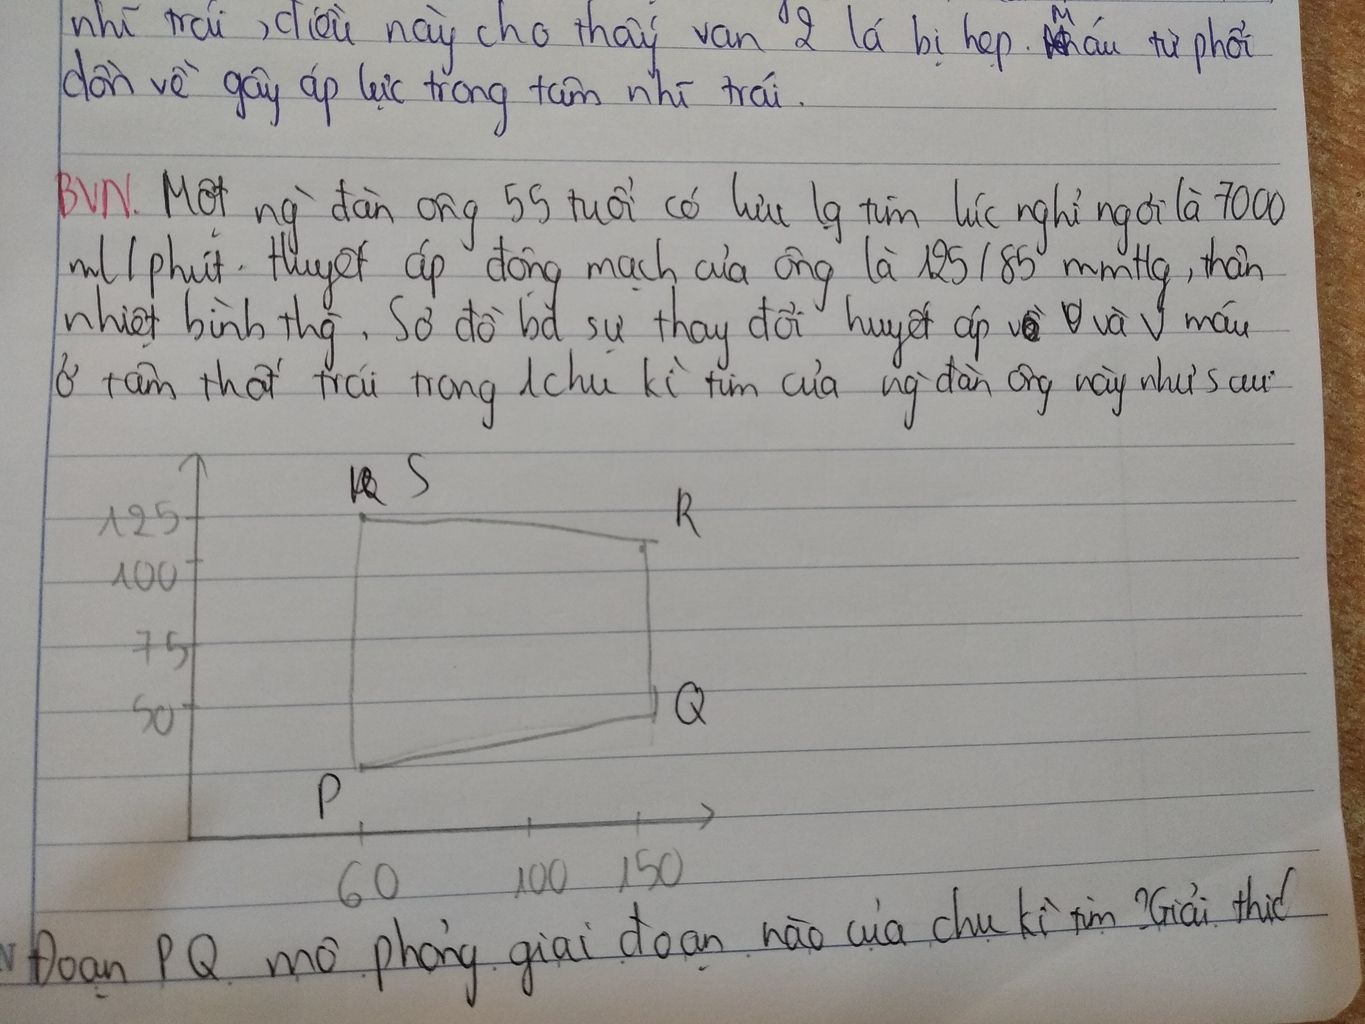 nhĩ trái, điều này cho thấy van 2 lá bị hẹp. Máu từ phổi
dồn về gây áp lực trong tâm nhĩ trái.
BVN. Một ng đàn ông 55 tuổi có lưu lg tim lúc nghỉ ngơi là 7000
ml/phút. Huyết áp động mạch của ông là 125/85 mmHg, thân
nhiệt bình thg. Sơ đồ bd sự thay đổi huyết áp và V máu
ở tâm thất trái trong 1 chu kì tim của ng đàn ông này như sau:
S
R
125
100
75
50
Q
P
60 100 150
Đoạn PQ mô phỏng giai đoạn nào của chu kì tim? Giải thíc